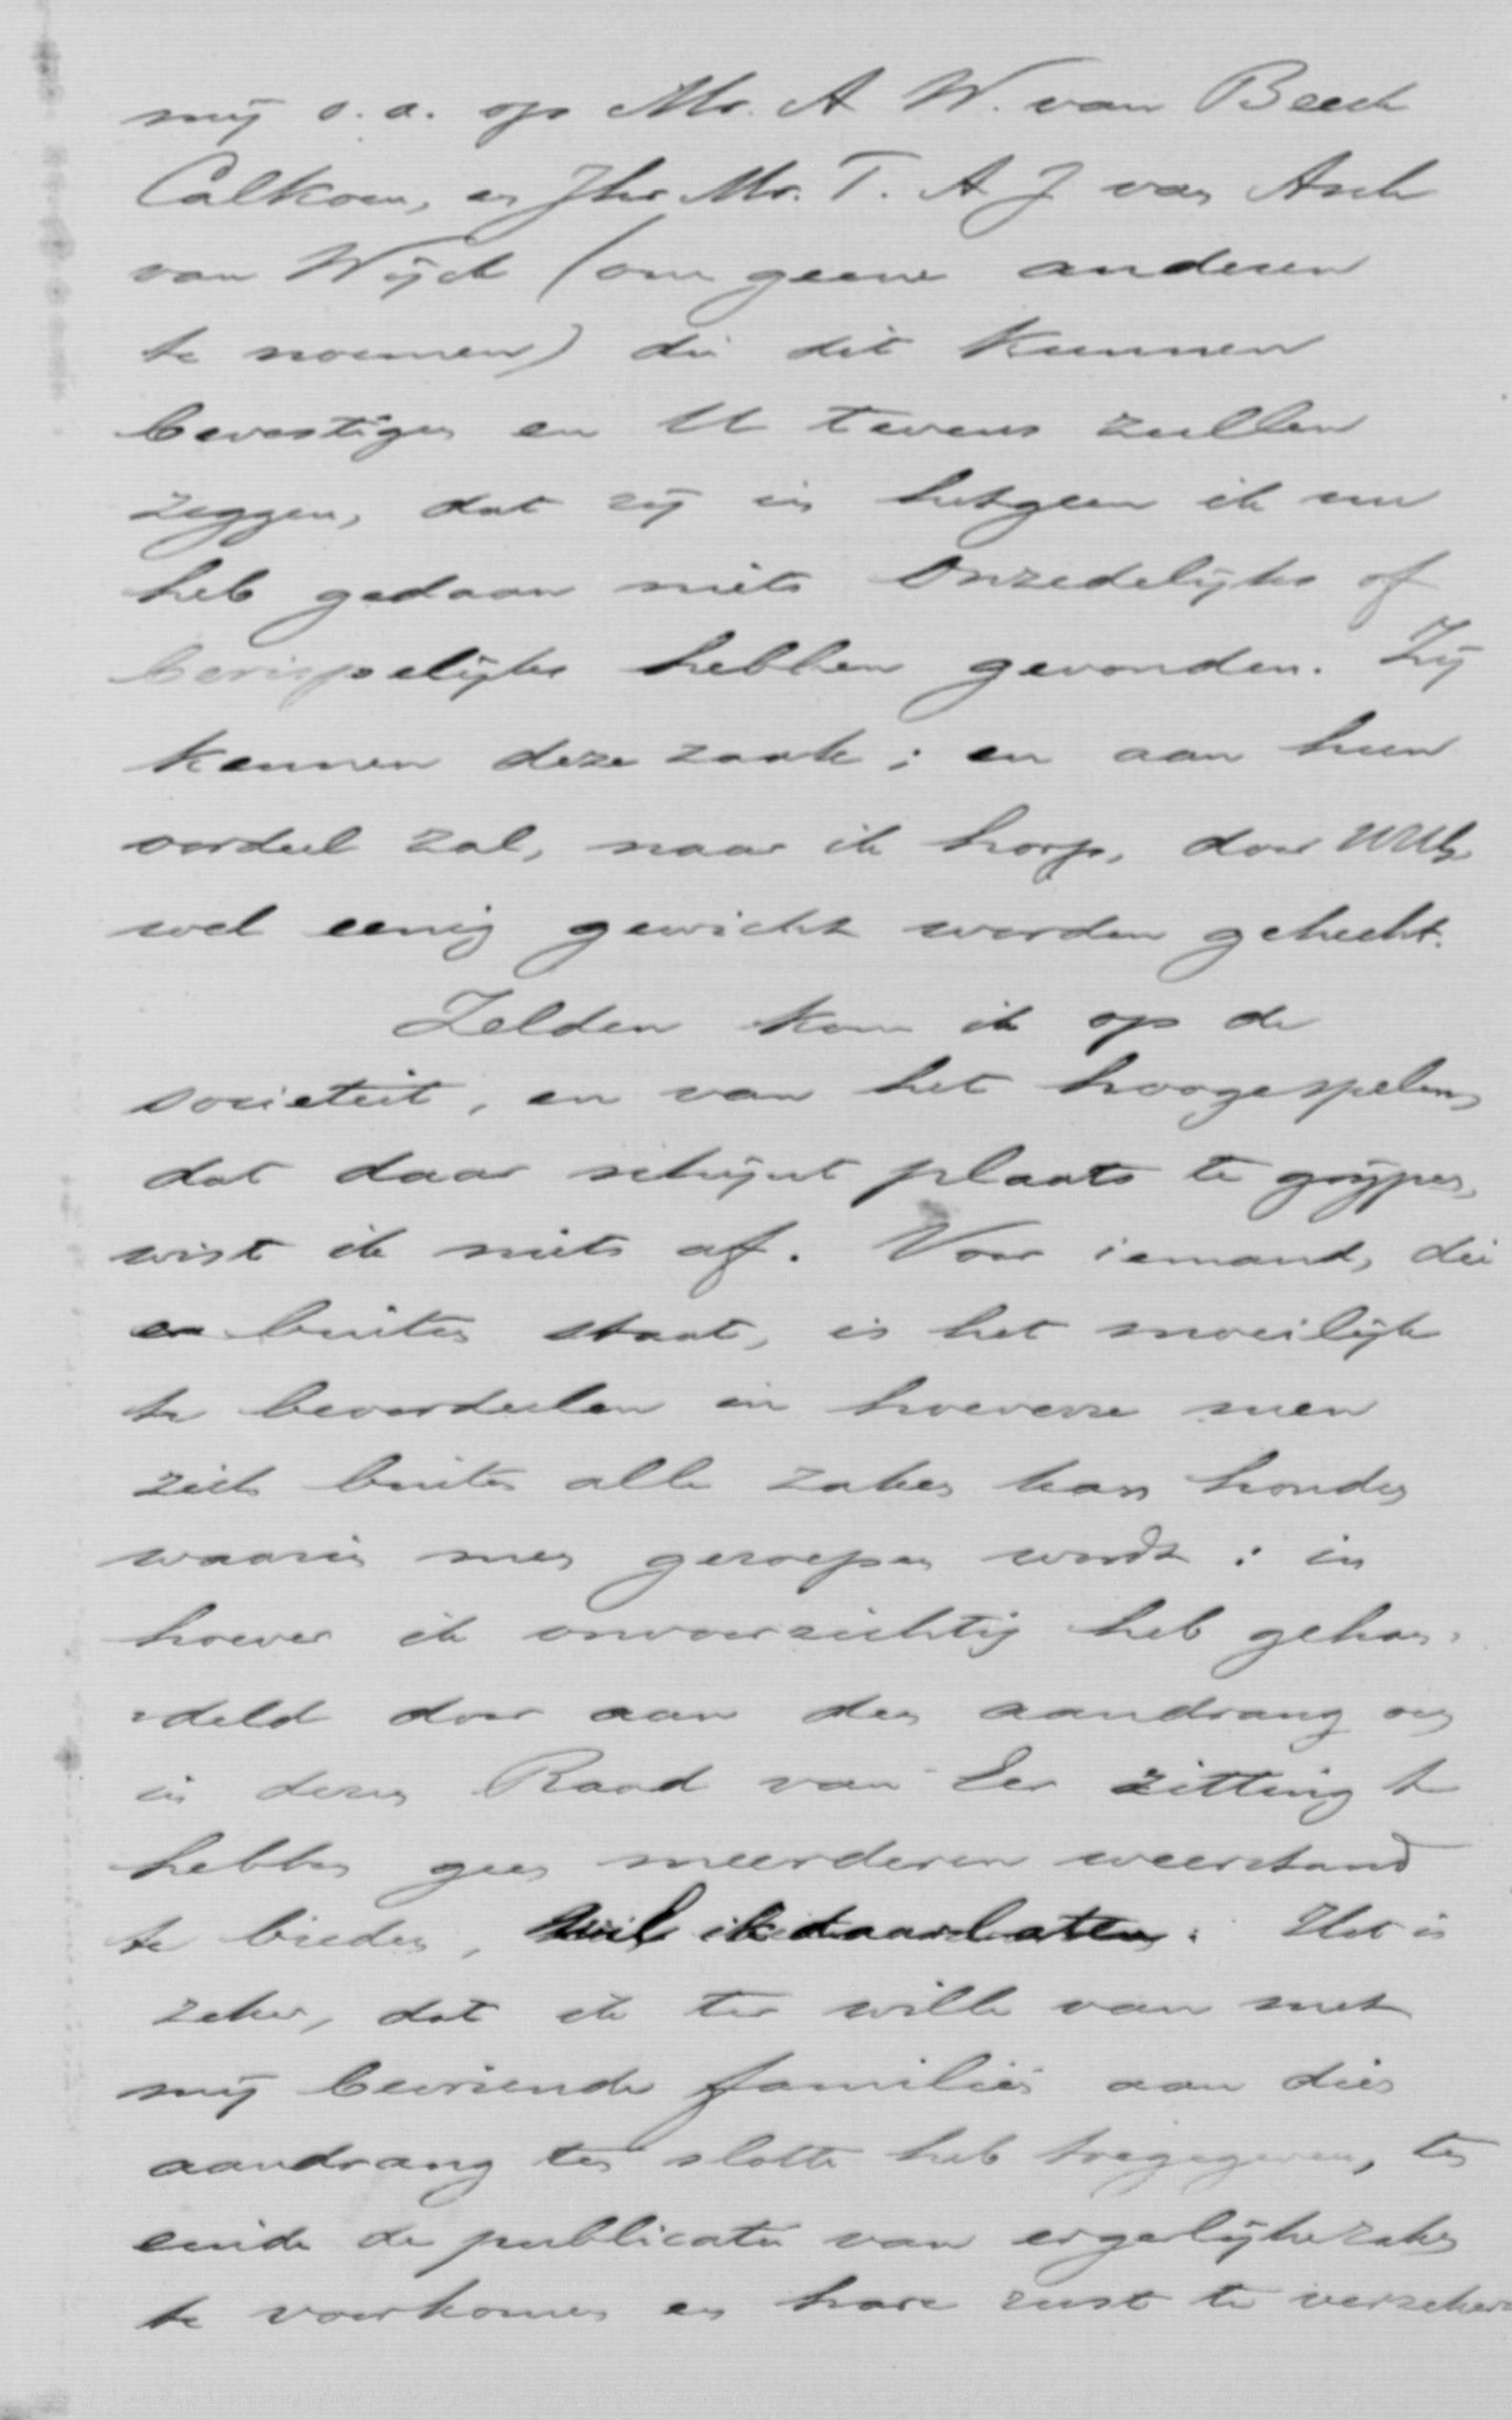 mij o. a. op Mr. A W. van Beeck
Calkoen, en Jhr Mr. T. A J van Asch
van Wijck (om geene anderen
te noemen) die dit kunnen
bevestigen en U tevens zullen
zeggen, dat zij in hetgeen ik nu
heb gedaan niets onzedelijks of
berispelijks hebben gevonden. Zij
kennen deze zaak; en aan hun
oordeel zal, naar ik hoop, door
wel eenig gewicht worden gehecht.
Zelden kom ik op de
societeit, en van het hooge spelen,
dat daar schijnt plaats te grijpen,
wist ik niets af. Voor iemand, die
er buiten staat, is het moeilijk
te beoordeelen in hoeverre men
zich buiten alle zaken kan houden
waarin men geroepen wordt: in
hoever ik onvoorzichtig heb gehan-
-deld door aan den aandrang om
in dezen Raad van Eer zitting te
hebben geen meerderen weerstand
te bieden, wil ik daarlaten. Het is
zeker, dat ik ter wille van met
mij bevriende familiën aan dien
aandrang ten slotte heb toegegeven, ten
einde de publicatie van ergerlijke zaken
te voorkomen en hare rust te verzekeren